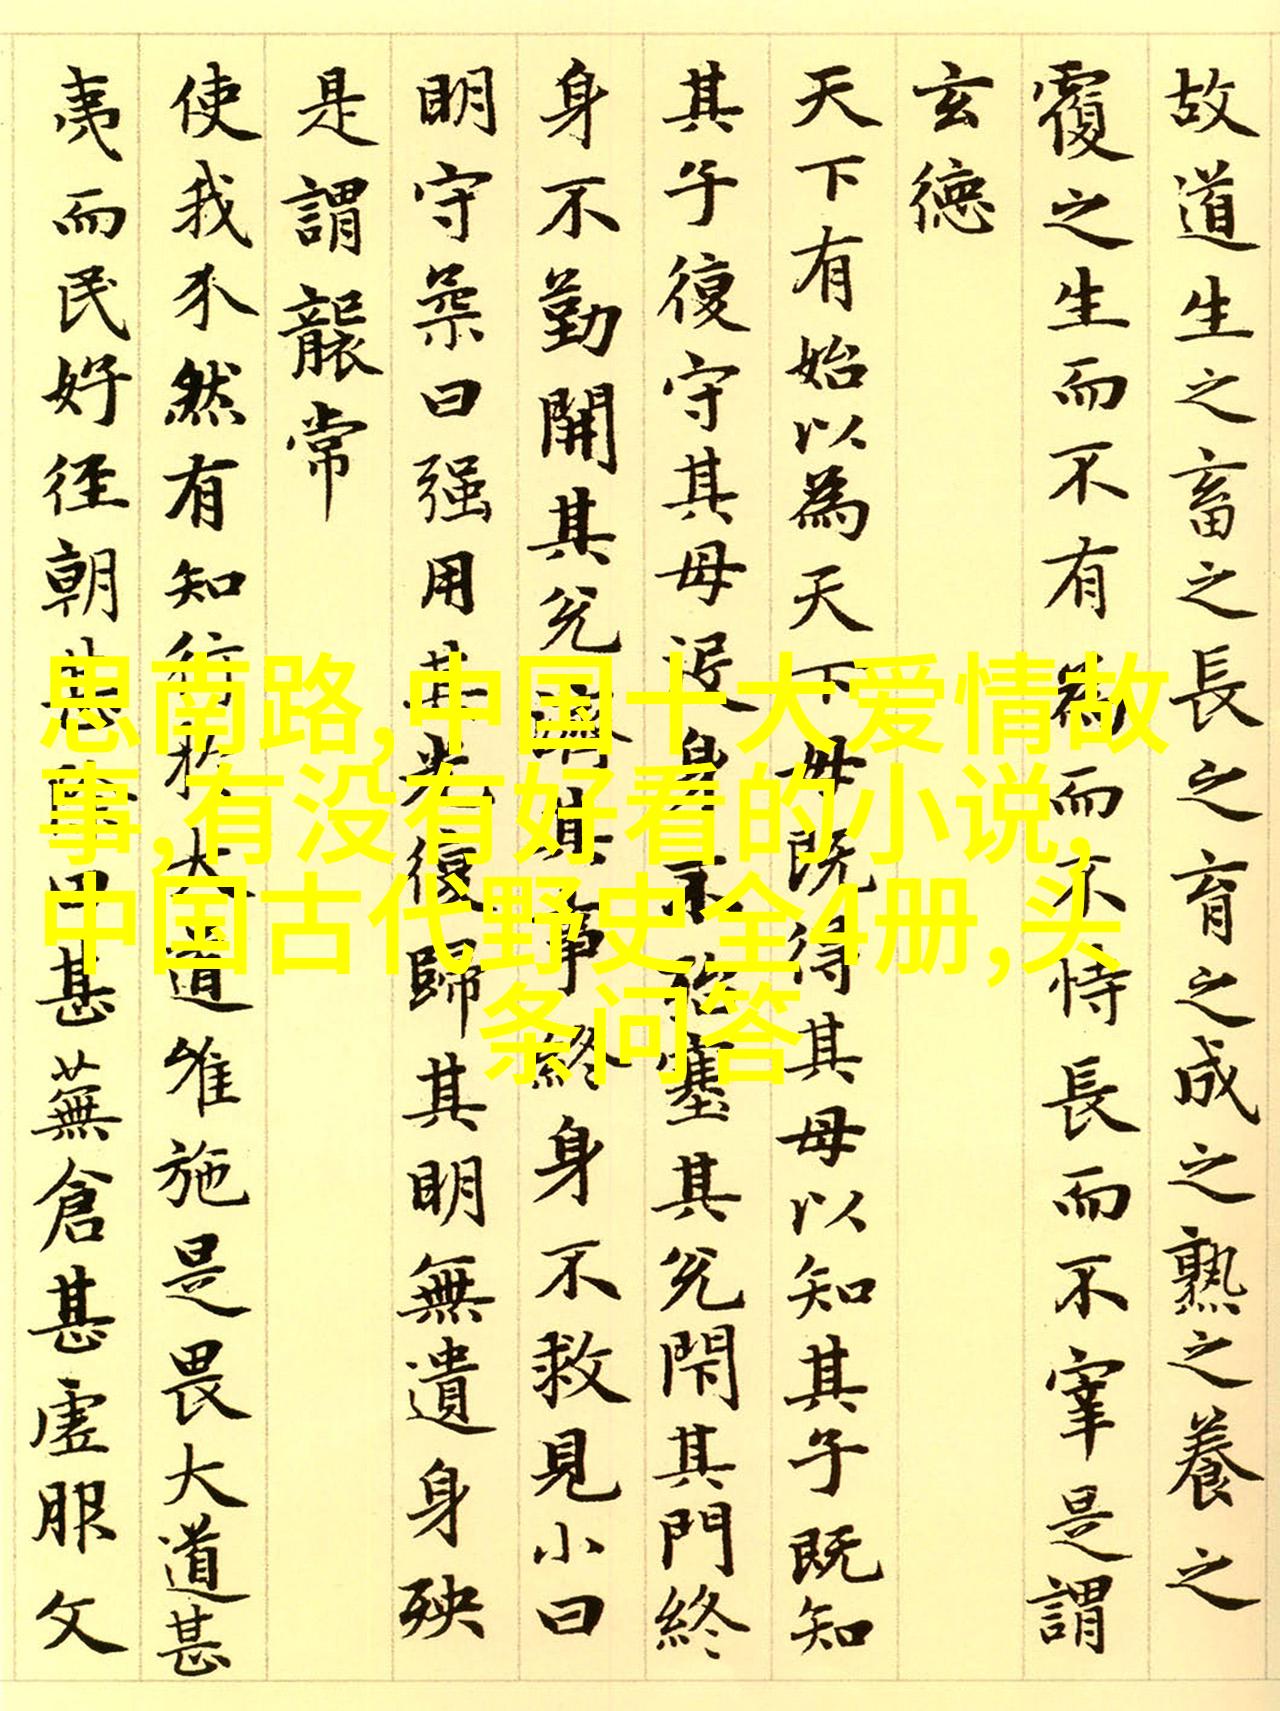 故道生之畜之長之育之成之熟之養之
覆之生而不有為而不恃長而不宰是謂
玄德
天下有始以為天下母既得其母以知其子既知
其子復守其母沒身不殆塞其兌閇其門終
身不勤開其兌濟其事終身不救見小曰
明守柔曰强用其光復歸其明無遺身殃
是謂襲常
使我介然有知行於大道唯施是畏大道甚
夷而民好徑朝甚除田甚蕪倉甚虛服文
思南路,中国十大爱情故
事,有没有好看的小说,
中国古代野史全4册,头
条问答